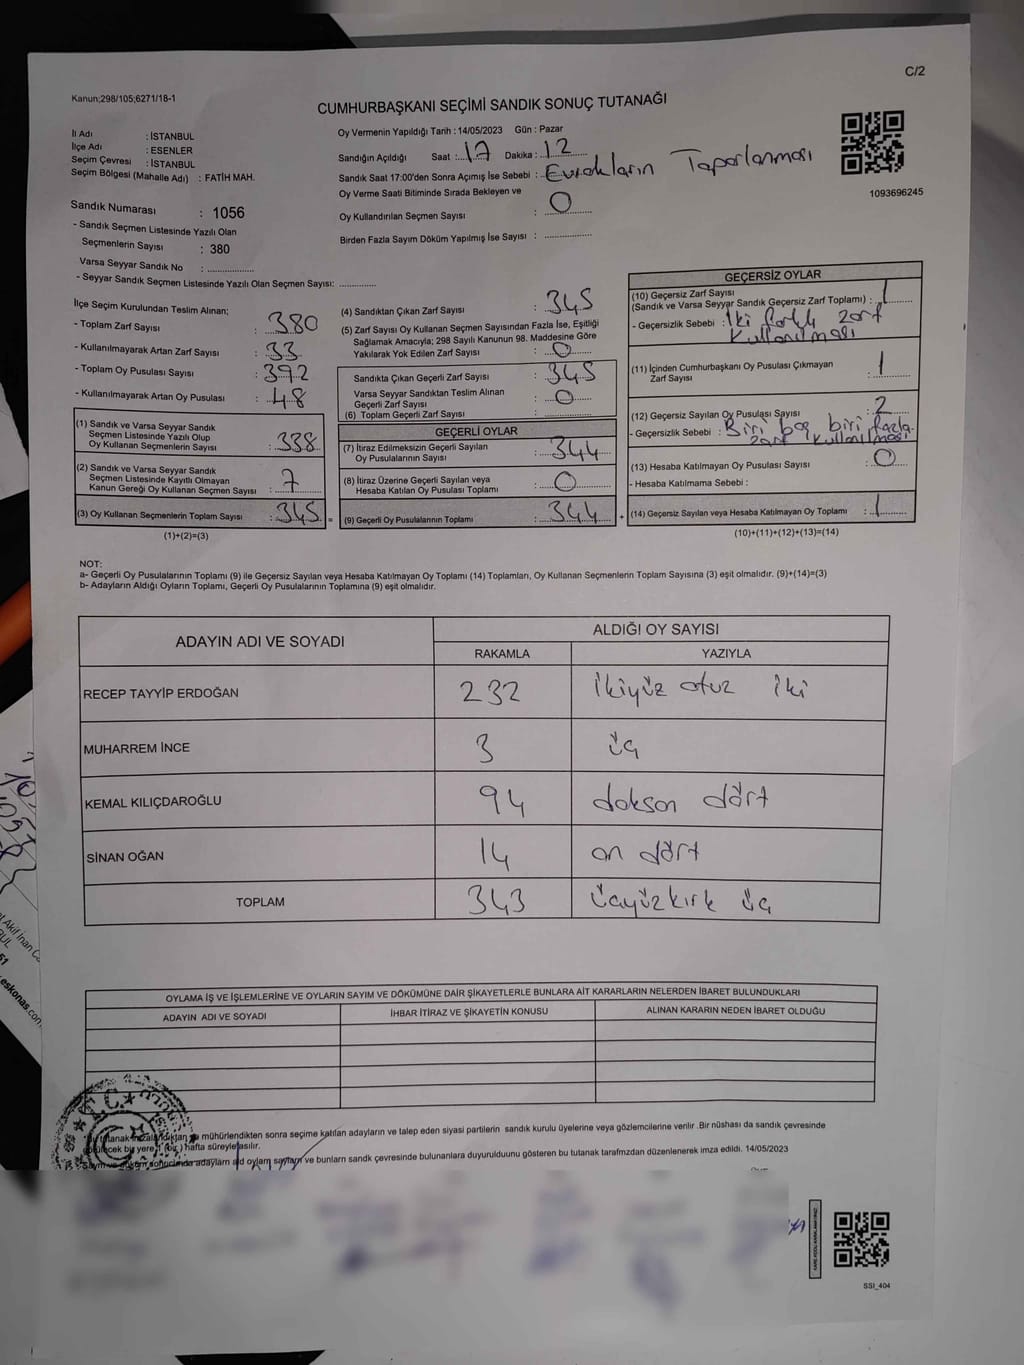 C/2
Kanun;298/105;6271/18-1
CUMHURBAŞKANI SEÇİMİ SANDIK SONUÇ TUTANAĞI
İl Adı : İSTANBUL
İlçe Adı : ESENLER
Seçim Çevresi : İSTANBUL
Seçim Bölgesi (Mahalle Adı) : FATİH MAH.
Sandık Numarası : 1056
- Sandık Seçmen Listesinde Yazılı Olan
Seçmenlerin Sayısı : 380
Varsa Seyyar Sandık No : ...............
- Seyyar Sandık Seçmen Listesinde Yazılı Olan Seçmen Sayısı: ............
Oy Vermenin Yapıldığı Tarih : 14/05/2023 Gün : Pazar
Sandığın Açıldığı Saat : 17 Dakika : 12
Sandık Saat 17:00'den Sonra Açımış İse Sebebi : Evrakların Toparlanması
Oy Verme Saati Bitiminde Sırada Bekleyen ve
Oy Kullandırılan Seçmen Sayısı : 0
Birden Fazla Sayım Döküm Yapılmış İse Sayısı : ...............
1093696245
İlçe Seçim Kurulundan Teslim Alınan;
- Toplam Zarf Sayısı : 380
- Kullanılmayarak Artan Zarf Sayısı : 33
- Toplam Oy Pusulası Sayısı : 392
- Kullanılmayarak Artan Oy Pusulası : 48
(1) Sandık ve Varsa Seyyar Sandık
Seçmen Listesinde Yazılı Olup
Oy Kullanan Seçmenlerin Sayısı : 338
(2) Sandık ve Varsa Seyyar Sandık
Seçmen Listesinde Kayıtlı Olmayan
Kanun Gereği Oy Kullanan Seçmen Sayısı : 7
(3) Oy Kullanan Seçmenlerin Toplam Sayısı : 345
(1)+(2)=(3)
(4) Sandıktan Çıkan Zarf Sayısı : 345
(5) Zarf Sayısı Oy Kullanan Seçmen Sayısından Fazla İse, Eşitliği
Sağlamak Amacıyla; 298 Sayılı Kanunun 98. Maddesine Göre
Yakılarak Yok Edilen Zarf Sayısı : 0
Sandıkta Çıkan Geçerli Zarf Sayısı : 345
Varsa Seyyar Sandıktan Teslim Alınan
Geçerli Zarf Sayısı : 0
(6) Toplam Geçerli Zarf Sayısı : ...............
GEÇERLİ OYLAR
(7) İtiraz Edilmeksizin Geçerli Sayılan
Oy Pusulalarının Sayısı : 344
(8) İtiraz Üzerine Geçerli Sayılan veya
Hesaba Katılan Oy Pusulası Toplamı : 0
= (9) Geçerli Oy Pusulalarının Toplamı : 344 +
GEÇERSİZ OYLAR
(10) Geçersiz Zarf Sayısı
(Sandık ve Varsa Seyyar Sandık Geçersiz Zarf Toplamı) : 1
- Geçersizlik Sebebi : İki farklı zarf
kullanılması
(11) İçinden Cumhurbaşkanı Oy Pusulası Çıkmayan
Zarf Sayısı : 1
(12) Geçersiz Sayılan Oy Pusulası Sayısı : 2
- Geçersizlik Sebebi : Biri boş biri fazla
zarf kullanılması
(13) Hesaba Katılmayan Oy Pusulası Sayısı : 0
- Hesaba Katılmama Sebebi :
(14) Geçersiz Sayılan veya Hesaba Katılmayan Oy Toplamı : 1
(10)+(11)+(12)+(13)=(14)
NOT:
a- Geçerli Oy Pusulalarının Toplamı (9) ile Geçersiz Sayılan veya Hesaba Katılmayan Oy Toplamı (14) Toplamları, Oy Kullanan Seçmenlerin Toplam Sayısına (3) eşit olmalıdır. (9)+(14)=(3)
b- Adayların Aldığı Oyların Toplamı, Geçerli Oy Pusulalarının Toplamına (9) eşit olmalıdır.
ADAYIN ADI VE SOYADI ALDIĞI OY SAYISI
RAKAMLA YAZIYLA
RECEP TAYYİP ERDOĞAN 232 İkiyüz otuz iki
MUHARREM İNCE 3 üç
KEMAL KILIÇDAROĞLU 94 doksan dört
SİNAN OĞAN 14 on dört
TOPLAM 343 üçyüzkırk üç
OYLAMA İŞ VE İŞLEMLERİNE VE OYLARIN SAYIM VE DÖKÜMÜNE DAİR ŞİKAYETLERLE BUNLARA AİT KARARLARIN NELERDEN İBARET BULUNDUKLARI
ADAYIN ADI VE SOYADI İHBAR İTİRAZ VE ŞİKAYETİN KONUSU ALINAN KARARIN NEDEN İBARET OLDUĞU
T.C.
mühürlendikten sonra seçime katılan adayların ve talep eden siyasi partilerin sandık kurulu üyelerine veya gözlemcilerine verilir .Bir nüshası da sandık çevresinde
bir yere, 1 (bir ) hafta süreyle asılır.
adaylarn ald oylarn saylarn ve bunlarn sandk çevresinde bulunanlara duyurulduunu gösteren bu tutanak tarafmzdan düzenlenerek imza edildi. 14/05/2023
SSI_404
Akif İnan
eskonas.com